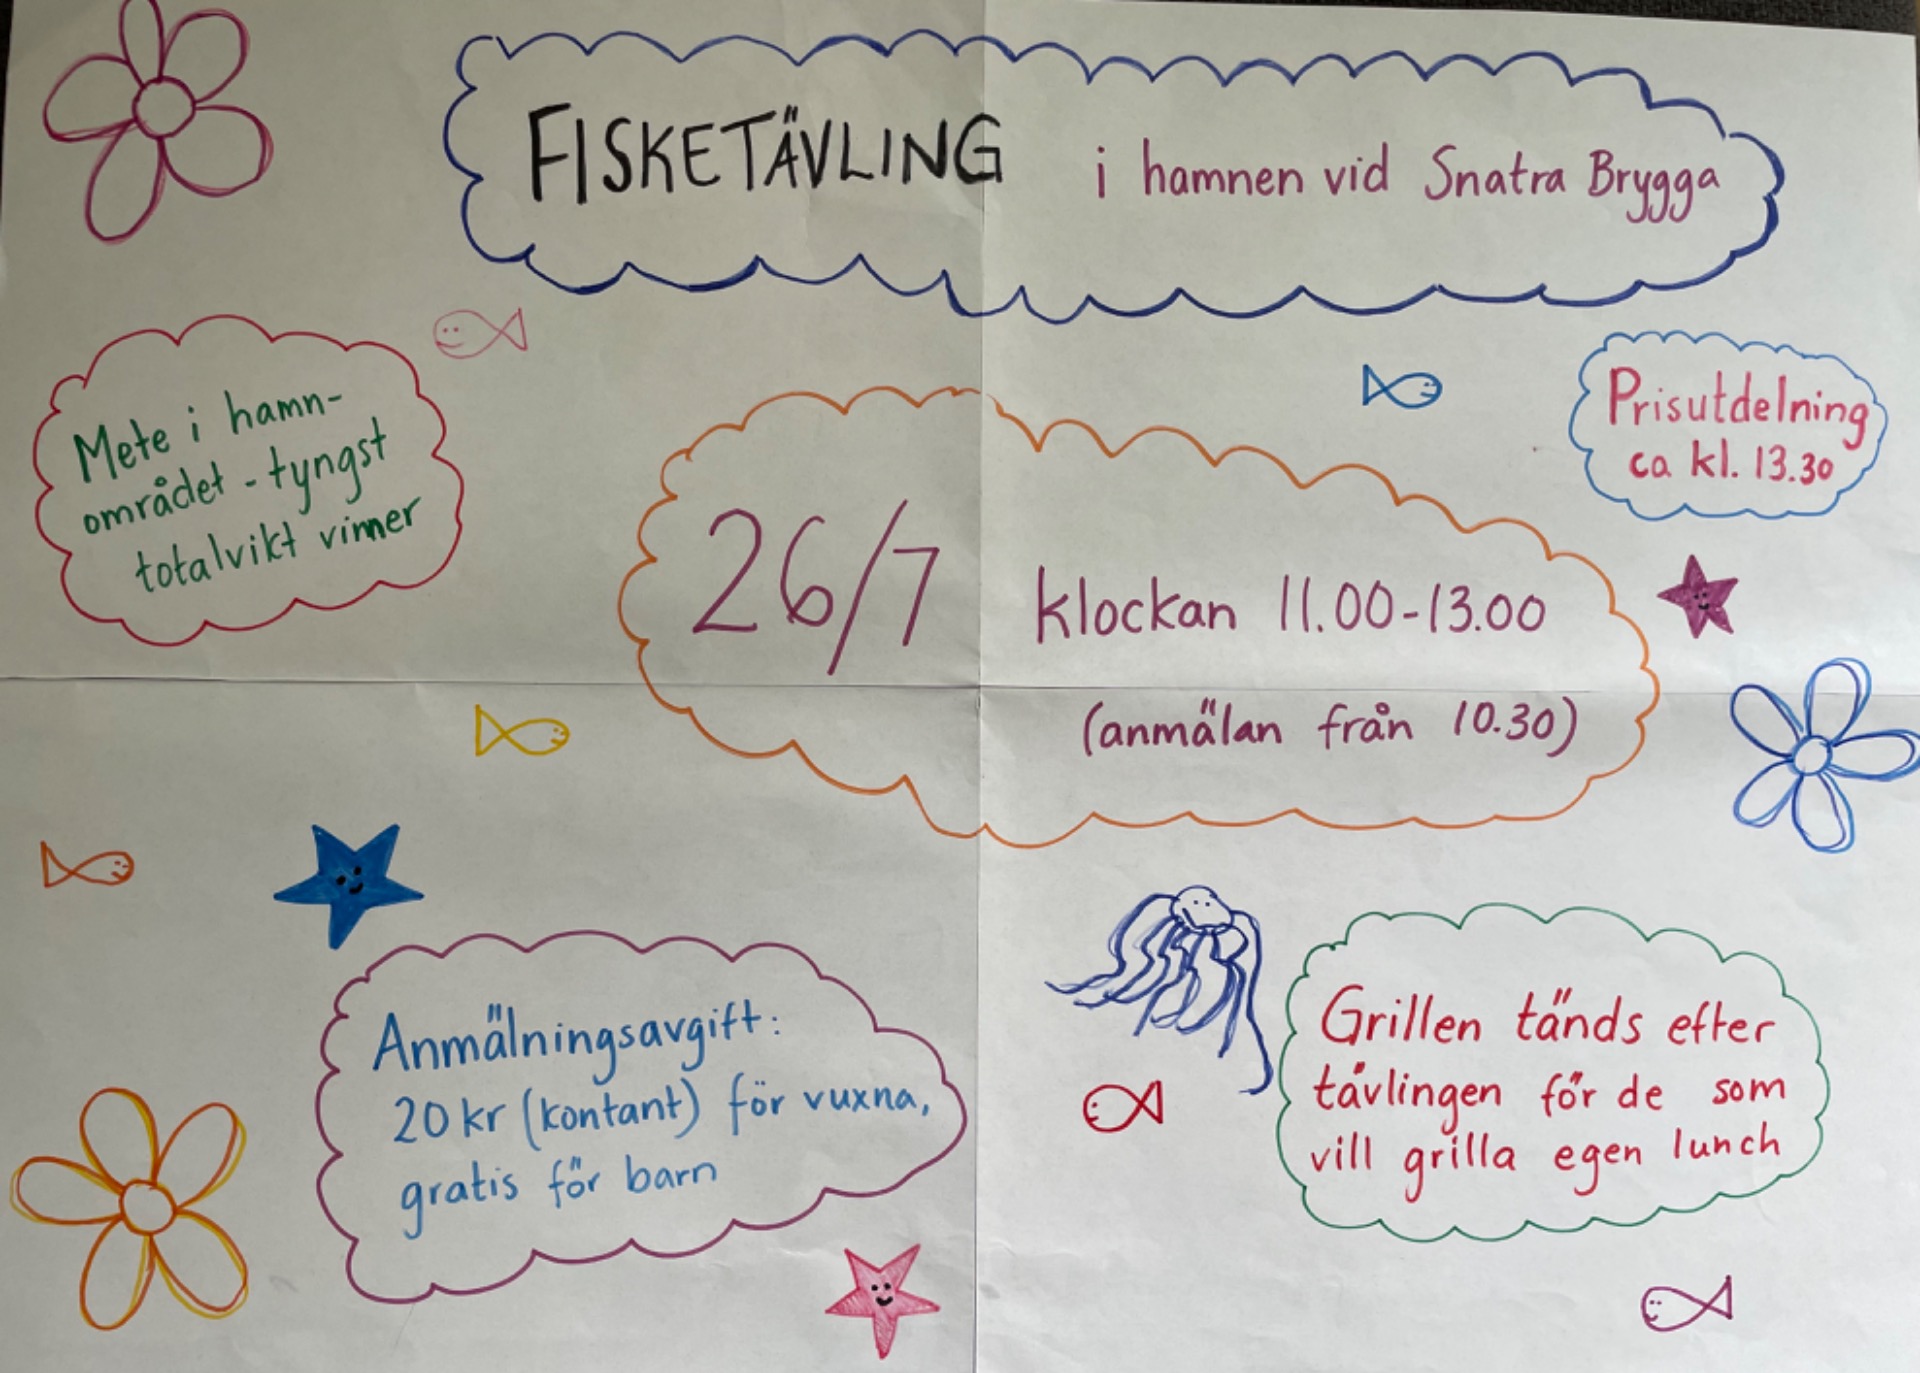 FISKETÄVLING i hamnen vid Snatra Brygga
Mete i hamn-
området - tyngst
totalvikt vinner
Prisutdelning
ca kl. 13.30
26/7 klockan 11.00-13.00
(anmälan från 10.30)
Anmälningsavgift:
20 kr (kontant) för vuxna,
gratis för barn
Grillen tänds efter
tävlingen för de som
vill grilla egen lunch